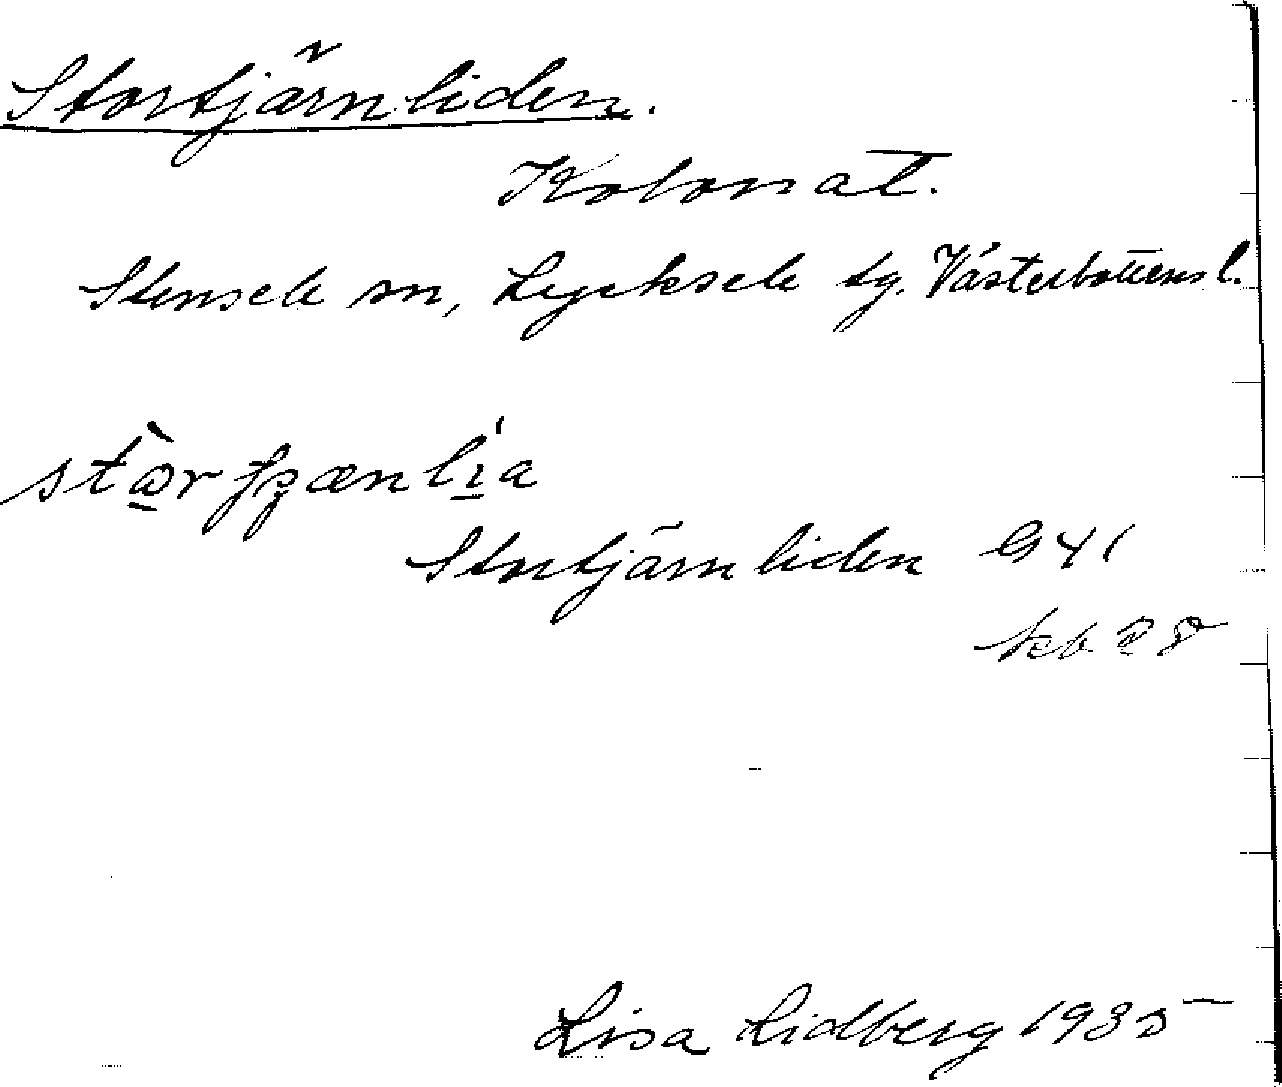 Stortjärnliden.
Kolonat.
Stensele sn, Lycksele tg. Västerbottens l.
Stortjärnliden G 41
kb 28
Lisa Lidberg 1935